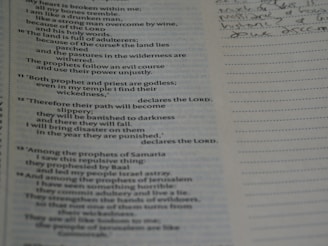 my heart is broken within me;
all my bones tremble.
I am like a drunken man,
like a strong man overcome by wine,
because of the LORD
and his holy words.
10 The land is full of adulterers;
because of the curse the land lies
parched
and the pastures in the wilderness are
withered.
The prophets follow an evil course
and use their power unjustly.
11 'Both prophet and priest are godless;
even in my temple I find their
wickedness,'
declares the LORD.
12 'Therefore their path will become
slippery;
they will be banished to darkness
and there they will fall.
I will bring disaster on them
in the year they are punished,'
declares the LORD.
13 'Among the prophets of Samaria
I saw this repulsive thing:
they prophesied by Baal
and led my people Israel astray.
14 And among the prophets of Jerusalem
I have seen something horrible:
they commit adultery and live a lie.
They strengthen the hands of evildoers,
so that not one of them turns from
their wickedness.
They are all like Sodom to me;
the people of Jerusalem are like
Gomorrah.'